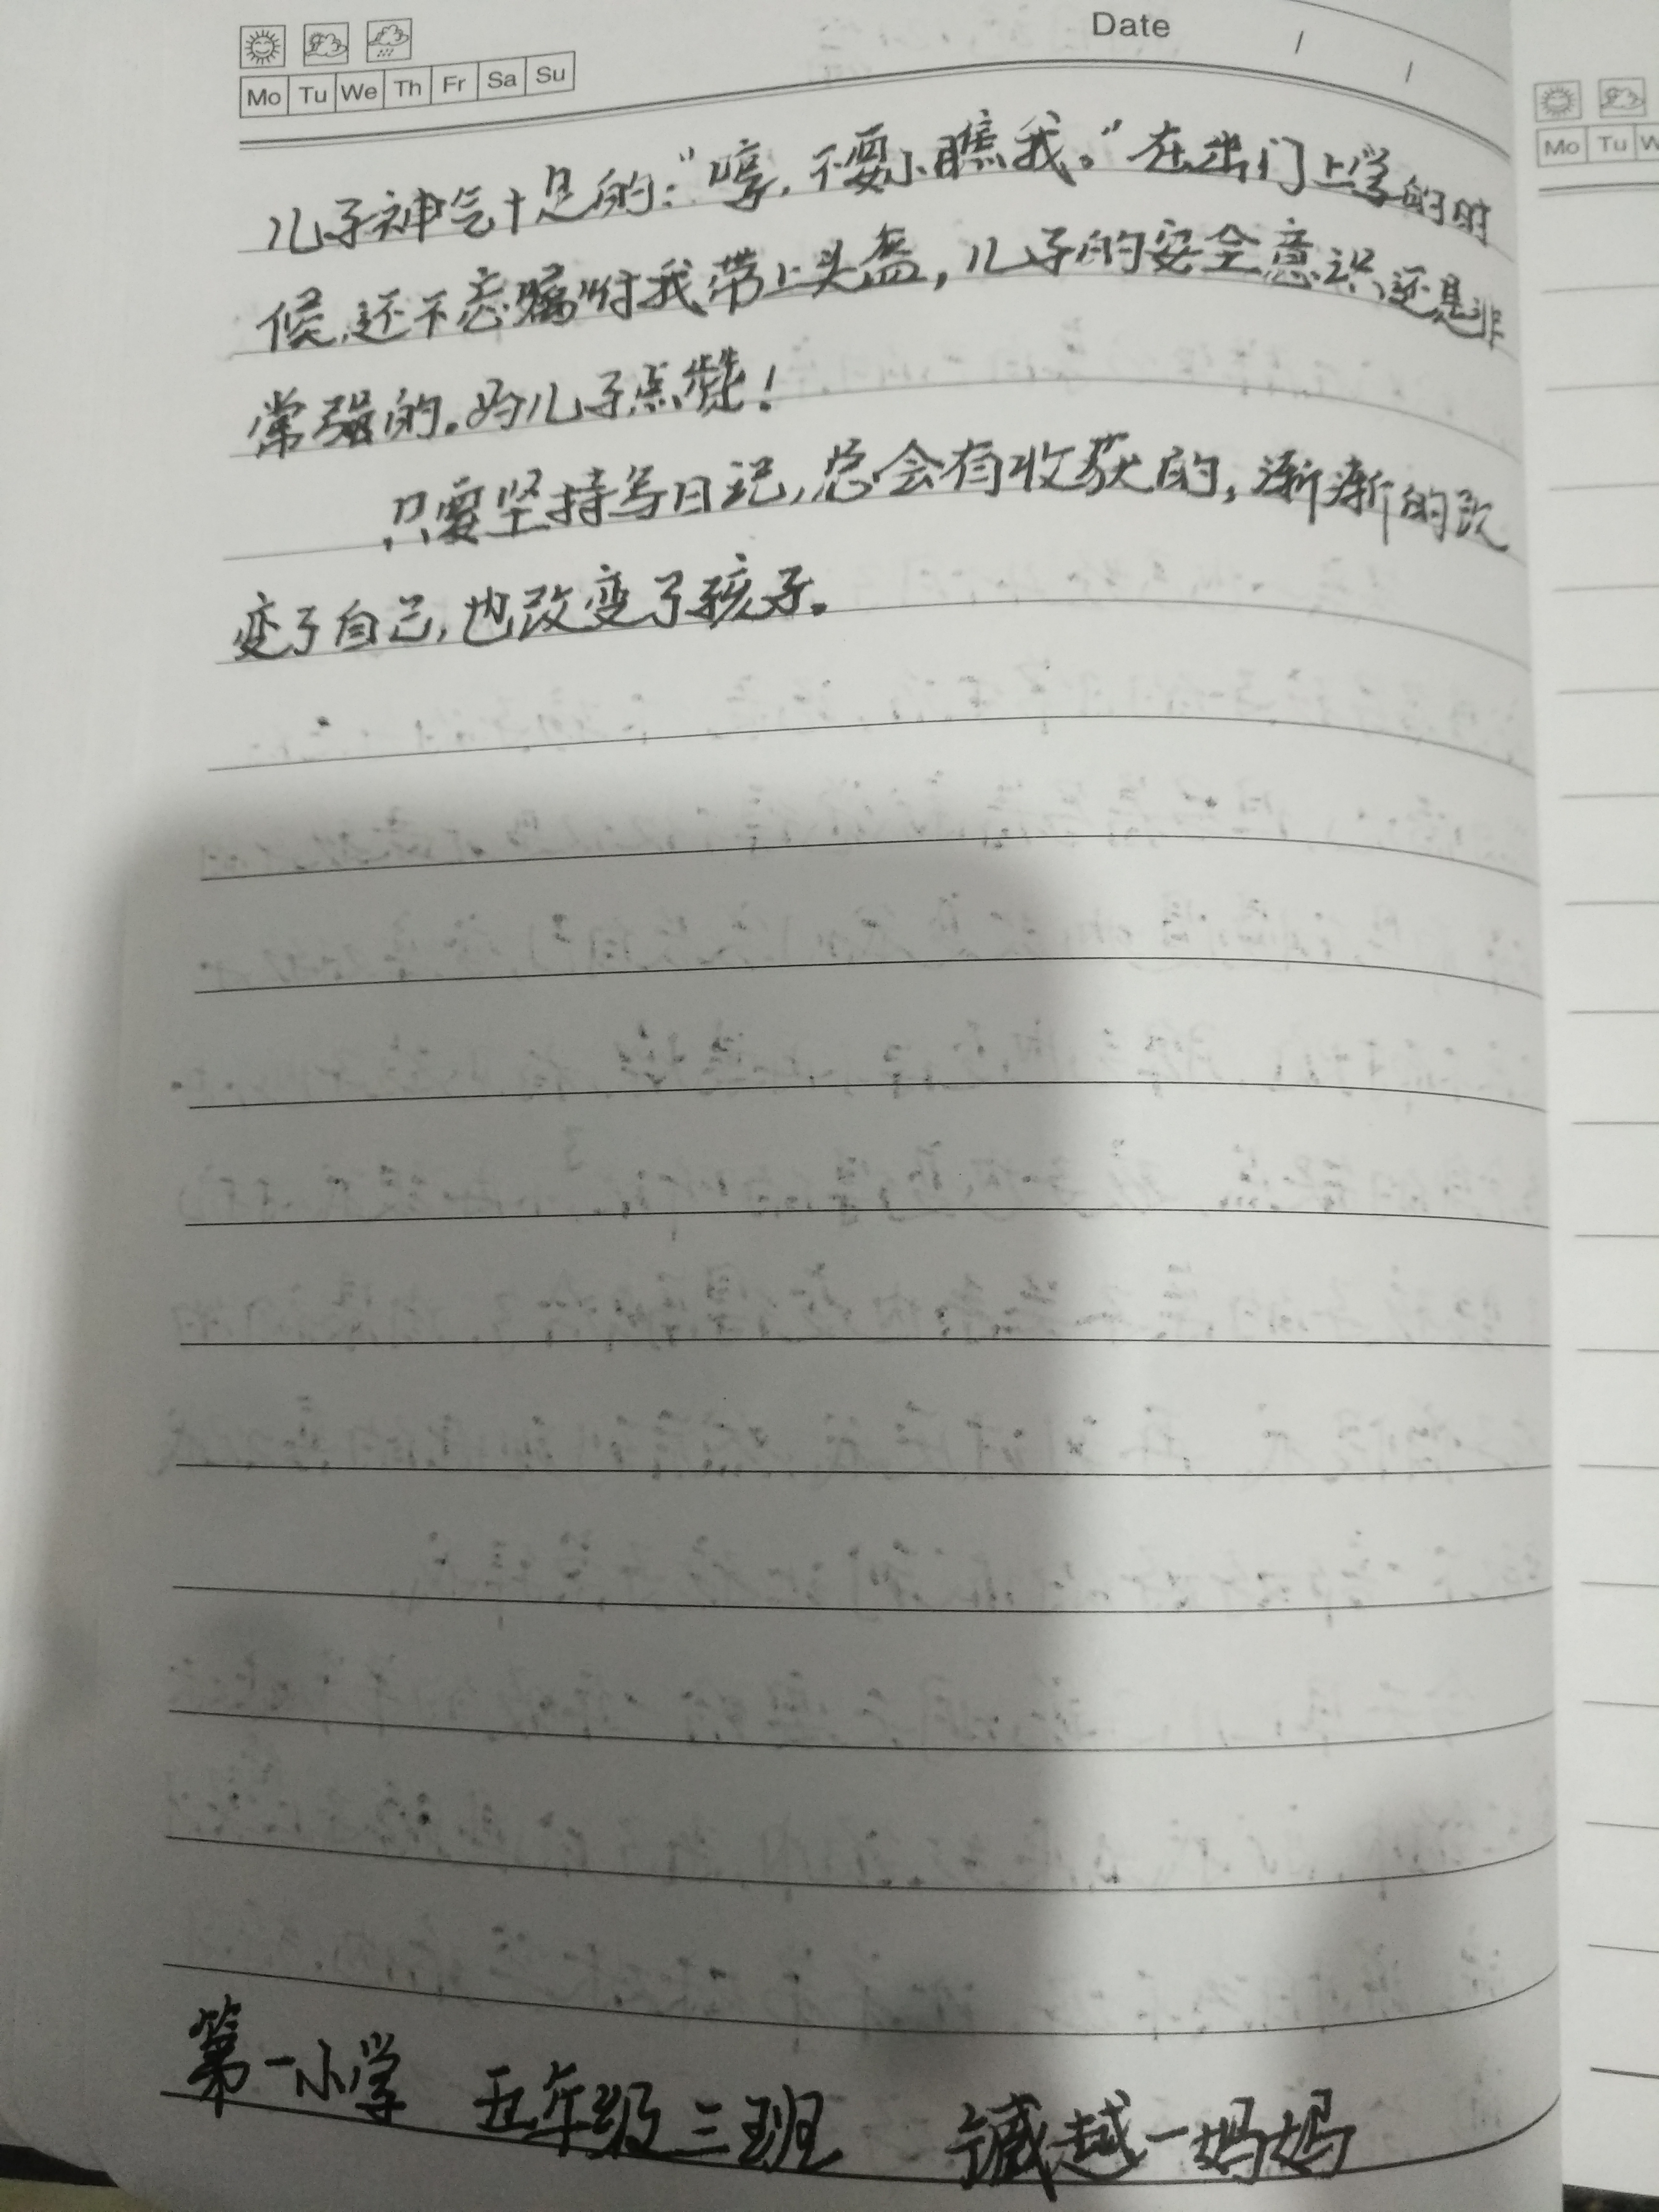 Date / /
Mo Tu We Th Fr Sa Su
Mo Tu W
儿子神气十足的:“哼,不要小瞧我。”在出门上学的时
候,还不忘嘱咐我带上头盔,儿子的安全意识还是非
常强的。为儿子点赞!
只要坚持写日记,总会有收获的,渐渐的改
变了自己,也改变了孩子。
第一小学 五年级三班 越一妈妈